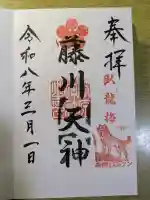 奉拝
臥龍梅
藤川天神
令和八年三月一日